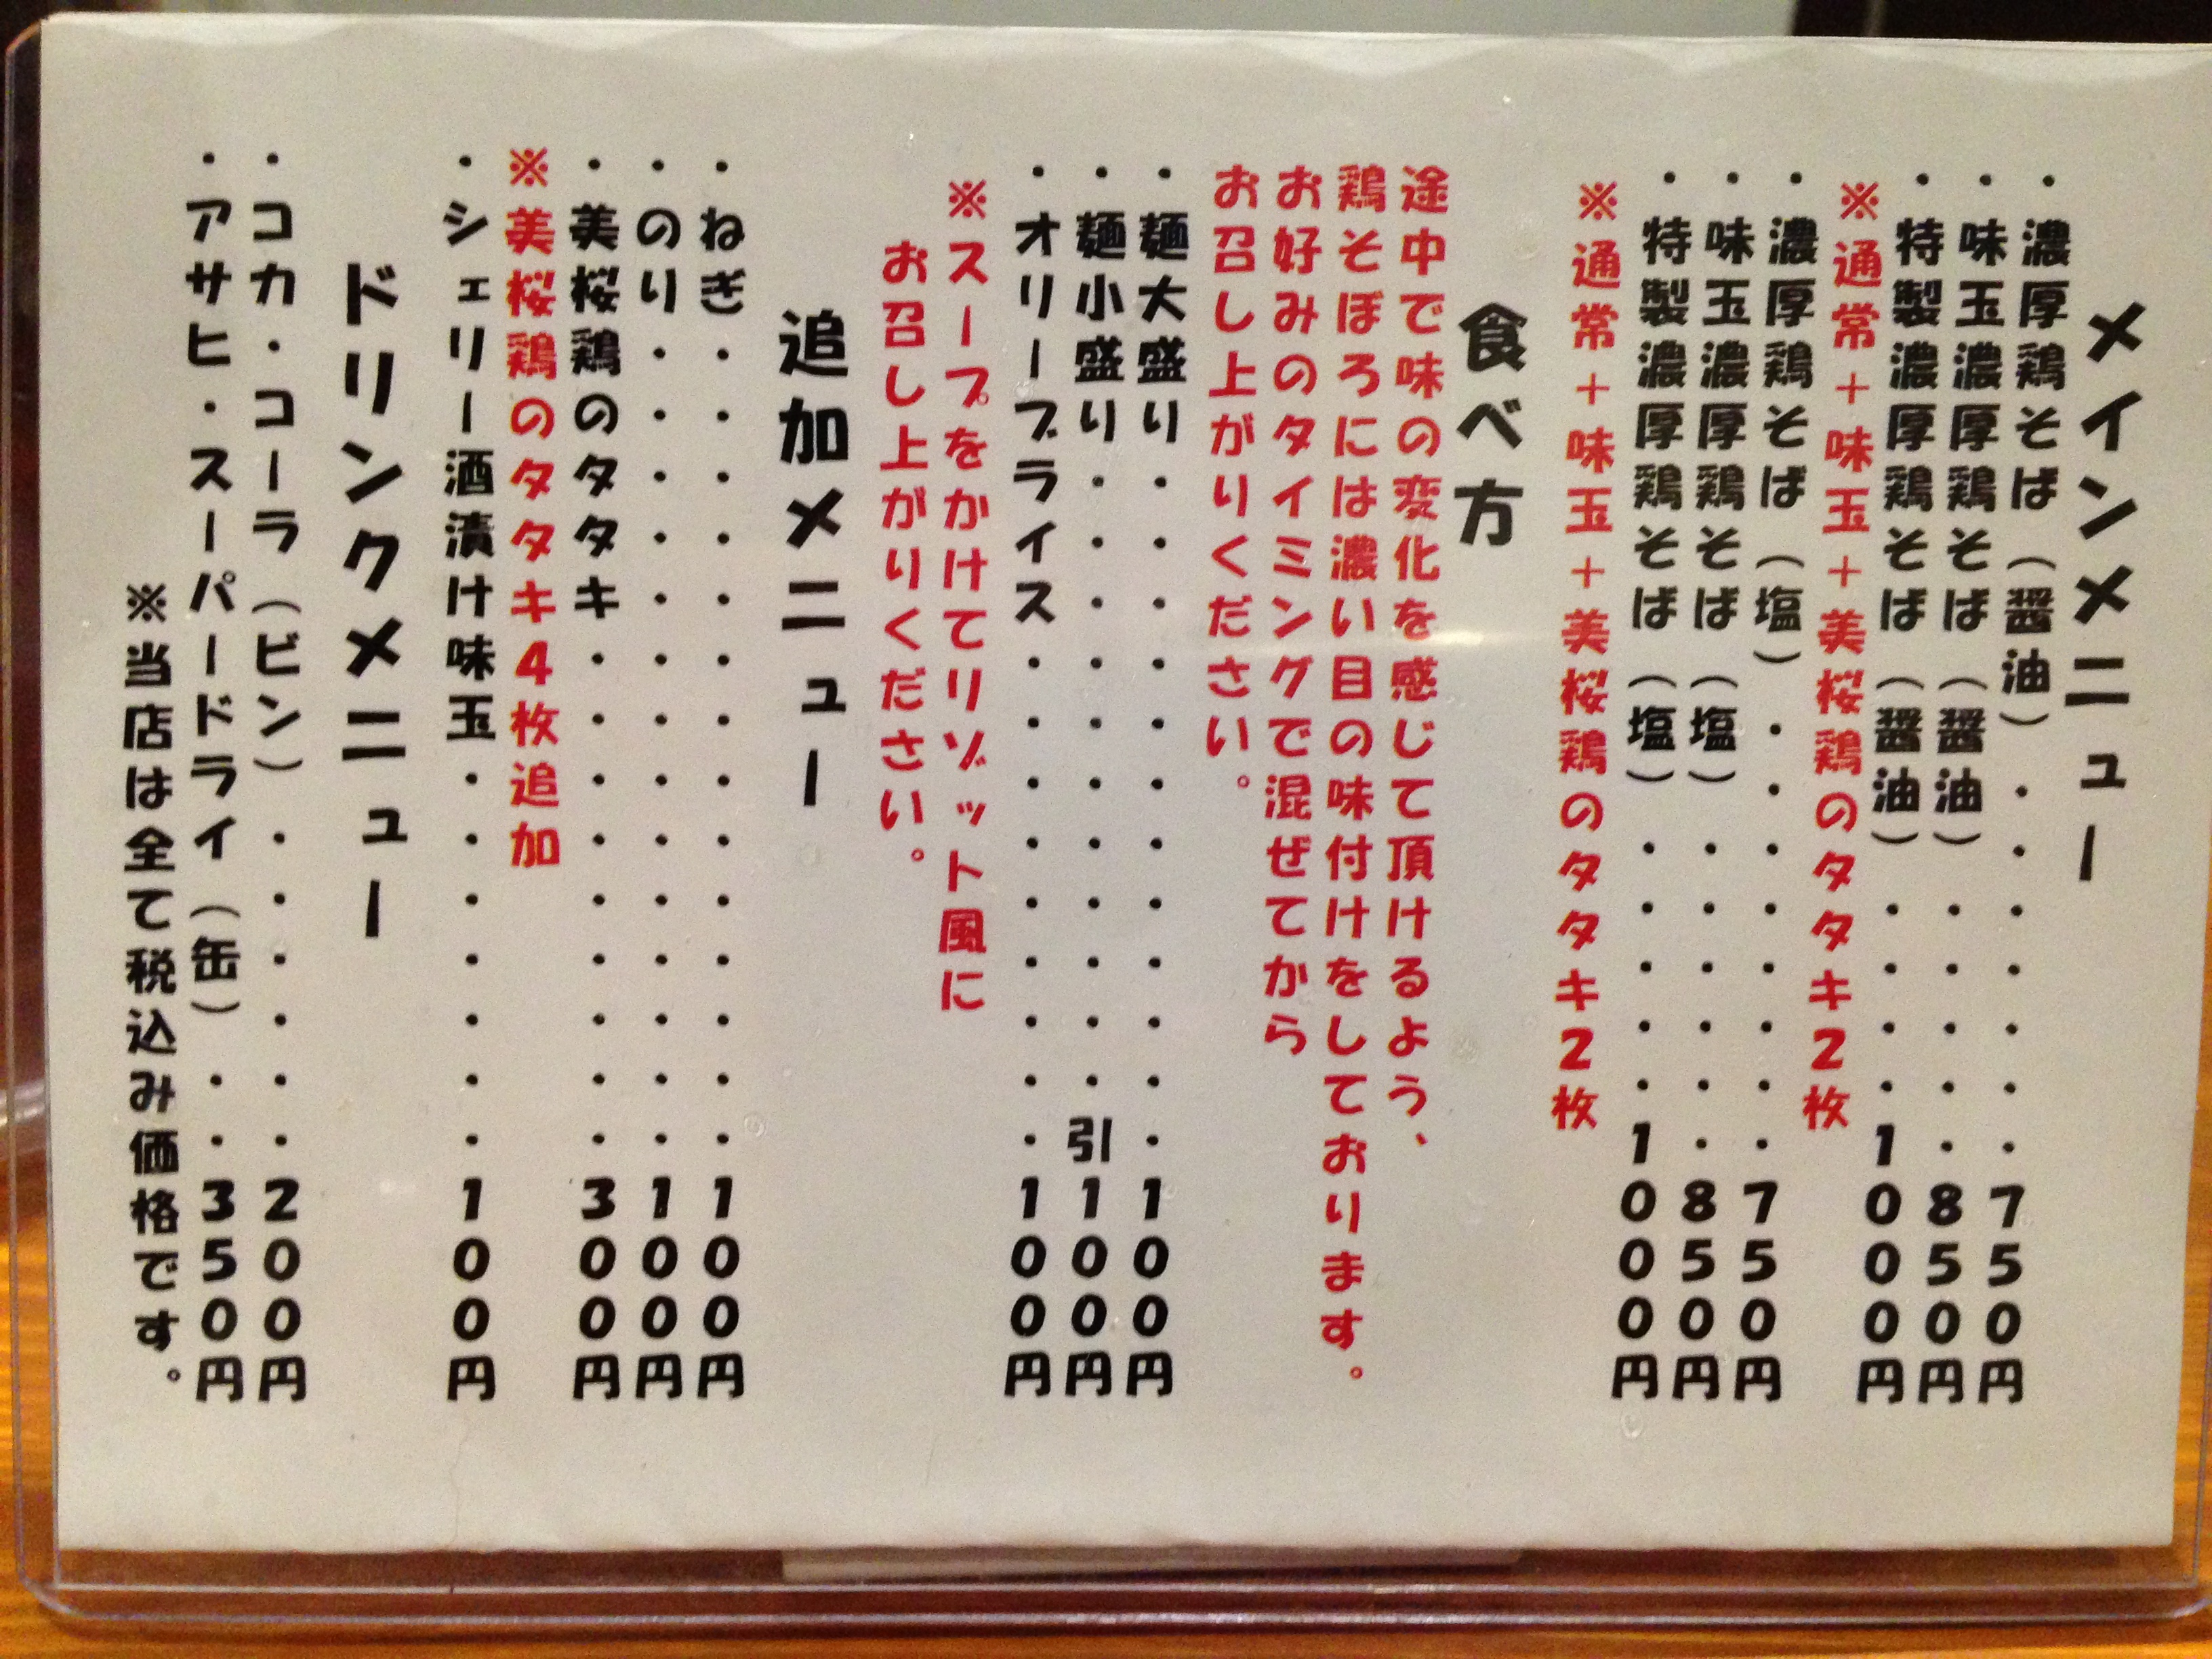 メインメニュー
・濃厚鶏そば（醤油）・・・・・・・750円
・味玉濃厚鶏そば（醤油）・・・・・850円
・特製濃厚鶏そば（醤油）・・・・1000円
※通常＋味玉＋美桜鶏のタタキ2枚
・濃厚鶏そば（塩）・・・・・・・・750円
・味玉濃厚鶏そば（塩）・・・・・・850円
・特製濃厚鶏そば（塩）・・・・・1000円
※通常＋味玉＋美桜鶏のタタキ2枚
食べ方
途中で味の変化を感じて頂けるよう、
鶏そぼろには濃い目の味付けをしております。
お好みのタイミングで混ぜてから
お召し上がりください。
・麺大盛り・・・・・・・・・・・・100円
・麺小盛り・・・・・・・・・・・引100円
・オリーブライス・・・・・・・・・100円
※スープをかけてリゾット風に
お召し上がりください。
追加メニュー
・ねぎ・・・・・・・・・・・・・・100円
・のり・・・・・・・・・・・・・・100円
・美桜鶏のタタキ・・・・・・・・・300円
※美桜鶏のタタキ4枚追加
・シェリー酒漬け味玉・・・・・・・100円
ドリンクメニュー
・コカ・コーラ（ビン）・・・・・・200円
・アサヒ・スーパードライ（缶）・・350円
※当店は全て税込み価格です。